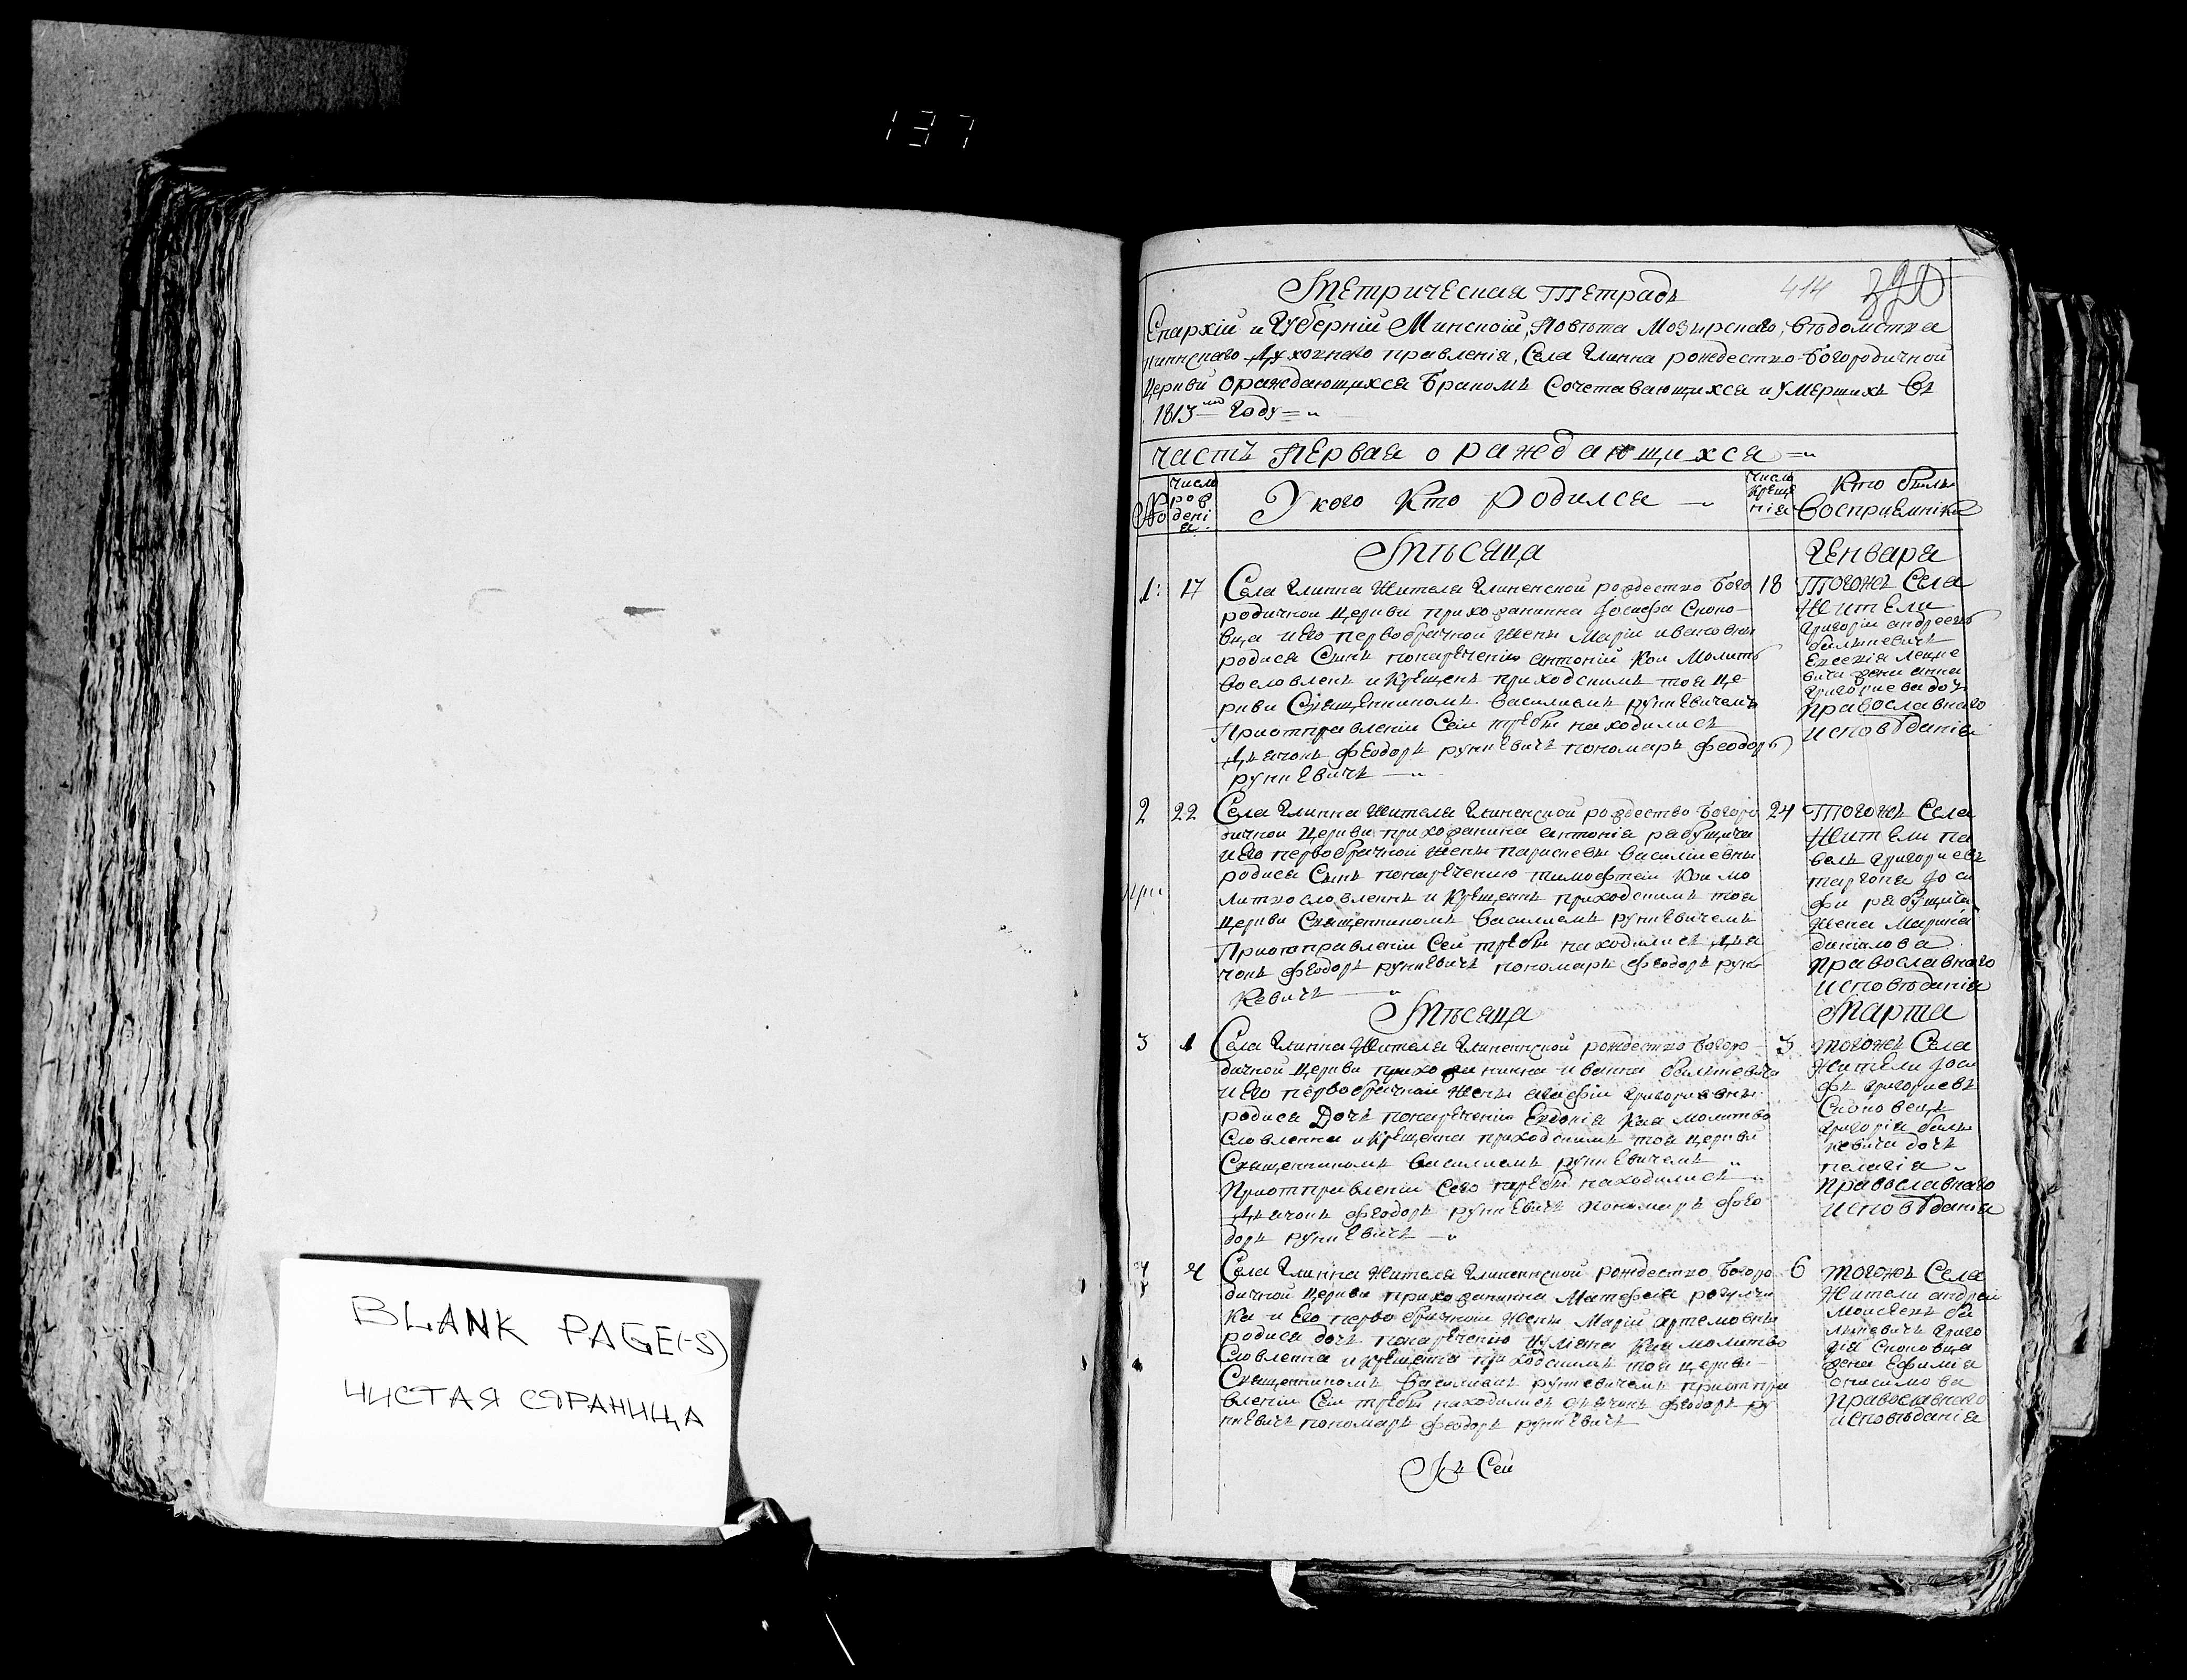 137
BLANK PAGE(-S)
ЧИСТАЯ СТРАНИЦА
414 320
Метрическая Тетрадь
Епархіи и Губерніи Минской, Повѣта Мозирскаго, вѣдомства
Пинскаго Духовнаго правленія, Села Глинна рождество-Богородичной
Церкви ораждающихся Бракомъ Сочетавающихся и умершихъ Въ
1813 году
часть Первая о раждающихся
№ число рождения
У кого Кто родился
число крещенія
Кто были Восприемники
Мѣсяца Генваря
1: 17 18
Села Глинна Жителя Глиненской рождество Бого
родичной Церкви прихожанина Іосифа Сково-
вца и Его первобрачной Жены Маріи ивановны
родися Сынъ понаречению антоній Кои Молитв
вословленъ и Крещенъ приходскимъ тоя Це-
ркви Священникомъ Василиемъ рункевичемъ
Приотправленіи Сей требы находились
Дьячокъ Феодоръ рункевичъ пономарь Феодоръ
рункевичъ
Тогожъ Села
Жители
григорій андреевъ
вича жени анна
григориева дочь
Православнаго
исповѣданія
2 22 24
Села Глинна Жителя Глиненской рождество Богоро
дичной Церкви прихожанина антонія рабущича
и Его первобрачной Жены парасковы василиевны
родися Сынъ понаречению тимофтей Кои мо
литвословленъ и Крещенъ приходскимъ тоя
Церкви Священникомъ Василиемъ рункевичемъ
Приотправленіи Сей требы находились Дья
чокъ Феодоръ рункевичъ пономарь Феодоръ рун
кевичъ
Тогожъ Села
Жители па
велъ григориевъ
жена Марина
данилова
Православнаго
исповѣданія
Мѣсяца Марта
3 1 3
Села Глинна Жителя Глиненской рождество Богоро
дичной Церкви прихожанина ивана
и Его первобрачной Жены агафіи григориевны
родися Дочь понаречению Евдокія Кая Молитво
Словленна и Крещенна приходскимъ тоя Церкви
Священникомъ Василиемъ рункевичемъ
Приотправленіи Сего требы находились
Дьячокъ Феодоръ рункевичъ пономарь Фео
доръ рункевичъ
тогожъ Села
Жители Іоси
фъ григориевъ
Сковоецъ
григорія бильк
кевича дочь
пелагія
Православнаго
исповѣданія
4 4 6
Села Глинна Жителя Глиненской рождество Богоро
дичной Церкви прихожанина Матфея рогулчи
ка и Его первобрачной Жены Маріи артемовны
родися дочь понаречению иуліана Кая молитво
Словленна и крещенна приходскимъ тоя церкви
Священникомъ Василиемъ рункевичемъ приотпра
вленіи Сей требы находились дьячокъ Феодоръ ру
нкевичъ пономарь Феодоръ рункевичъ
тогожъ Села
Жители андрей
Моисеевъ би
лькевичъ григо
рія Сковоца
жена Ефимія
Православнаго
исповѣданія
Къ Сей